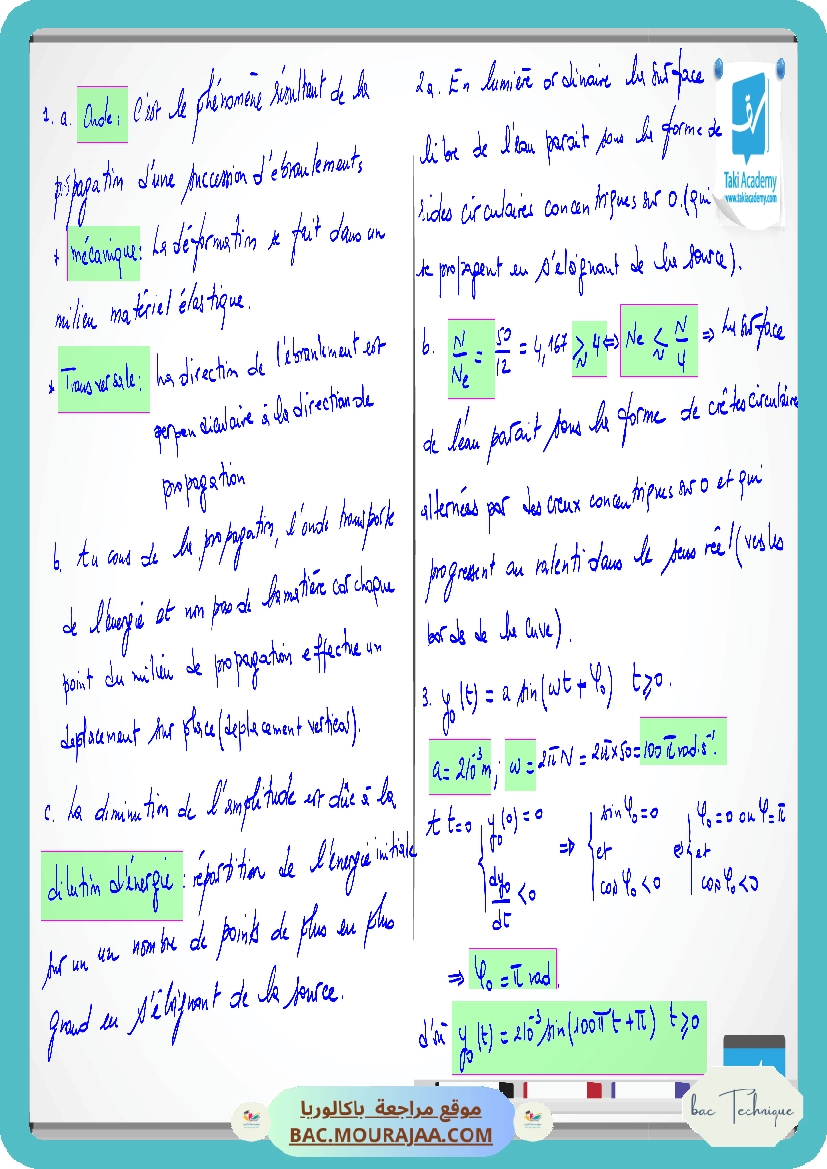 1. a. Onde : C'est le phénomène résultant de la
propagation d'une succession d'ébranlements
* mécanique : La déformation se fait dans un
milieu matériel élastique.
* Transversale : La direction de l'ébranlement est
perpendiculaire à la direction de
propagation
b. Au cours de la propagation, l'onde transporte
de l'énergie et non pas de la matière car chaque
point du milieu de propagation effectue un
deplacement sur place (deplacement vertical).
c. La diminution de l'amplitude est dûe à la
dilution d'énergie : répartition de l'énergie initiale
sur un un nombre de points de plus en plus
grand en s'éloignant de la source.
2a. En lumière ordinaire la surface
libre de l'eau parait sous la forme de
rides circulaires concentriques sur O. (qui
se propagent en s'éloignant de la source).
b. N/Ne = 50/12 = 4,167 ≳ 4 ⇔ Ne ≲ N/4 ⇒ La surface
de l'eau parait sous la forme de crêtes circulaires
alternées par des creux concentriques sur O et qui
progressent au ralenti dans le sens réel (vers les
bords de la cuve).
3. y₀(t) = a sin(ωt + φ₀) t ⩾ 0.
a = 2 10⁻³ m ; ω = 2πN = 2π×50 = 100π rad.s⁻¹.
A t=0 { y₀(0) = 0 ⇒ { sin φ₀ = 0 ⇔ { φ₀ = 0 ou φ = π
et et
dy₀/dt < 0 cos φ₀ < 0 cos φ₀ < 0
⇒ φ₀ = π rad.
d'où y₀(t) = 2 10⁻³ sin(100πt + π) t ⩾ 0
Taki Academy
www.takiacademy.com
موقع مراجعة باكالوريا
BAC.MOURAJAA.COM
bac Technique